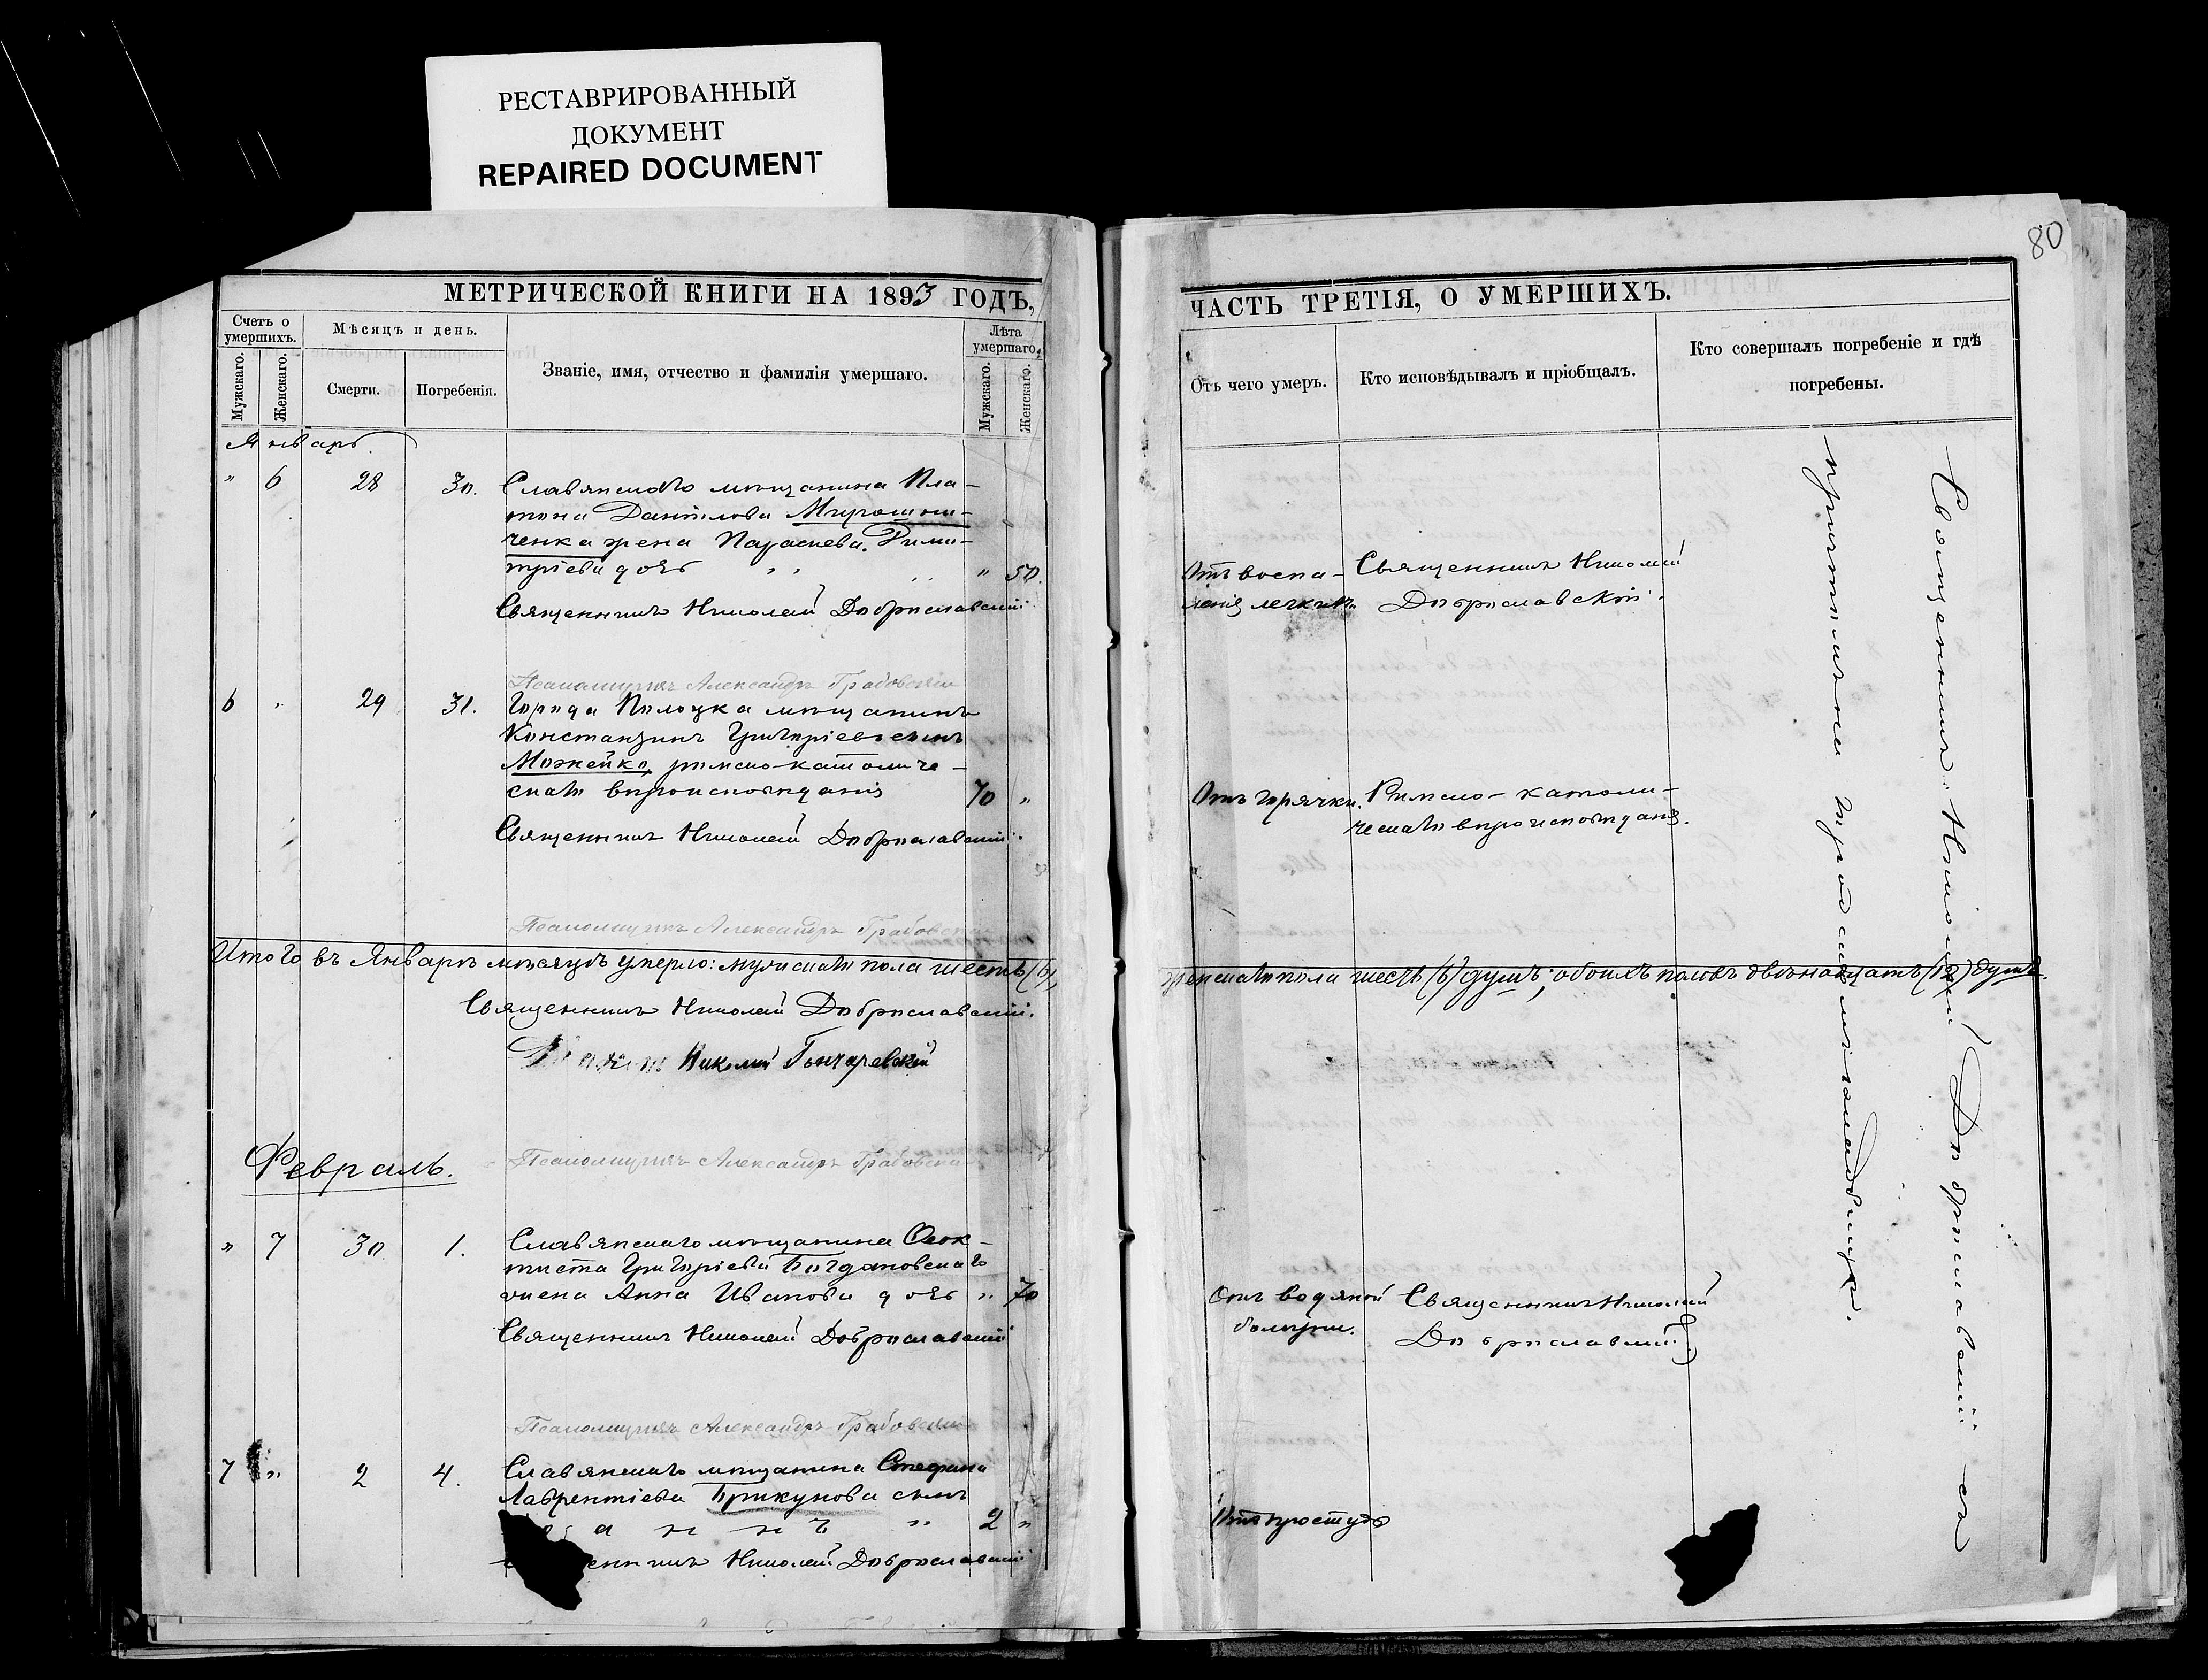 РЕСТАВРИРОВАННЫЙ
ДОКУМЕНТ
REPAIRED DOCUMENT
80
МЕТРИЧЕСКОЙ КНИГИ НА 1893 ГОДЪ,
Счетъ о умершихъ.
Мужскаго.
Женскаго.
Мѣсяцъ и день.
Смерти.
Погребенія.
Званіе, имя, отчество и фамилія умершаго.
Лѣта умершаго.
Мужскаго.
Женскаго.
Январь.
" 6 28 30. Славянскаго мѣщанина Пла-
тона Данілова Мирошни-
ченка жена Параскева Дими-
тріева дочь " 50.
Священникъ Николай Доброславскій
Псаломщикъ Александръ Грабовскій
6 " 29 31. Города Полоцка мѣщанинъ
Константинъ Григоріевъ сынъ
Можейко, римско-католиче-
скаго вѣроисповѣданія 70 "
Священникъ Николай Доброславскій.
Псаломщикъ Александръ Грабовскій
Итого въ Январѣ мѣсяцѣ умерло: мужскаго пола шесть (6),
Священникъ Николай Доброславскій.
Николай Гончаревскій
Псаломщикъ Александръ Грабовскій
Февраль.
" 7 30 1. Славянскаго мѣщанина Ѳеок-
тиста Григоріева Богдановскаго
жена Анна Иванова дочь " 70
Священникъ Николай Доброславскій
Псаломщикъ Александръ Грабовскій
7 " 2 4. Славянскаго мѣщанина Стефана
Лаврентіева Брикунова сынъ
" 2 "
Николай Доброславскій
ЧАСТЬ ТРЕТІЯ, О УМЕРШИХЪ.
Отъ чего умеръ.
Кто исповѣдывалъ и пріобщалъ.
Кто совершалъ погребеніе и гдѣ погребены.
Отъ воспа-
ленія легкихъ.
Священникъ Николай
Доброславскій.
Отъ горячки.
Римско-католи-
ческаго вѣроисповѣданія.
женскаго пола шесть (6) душъ; обоихъ половъ двѣнадцать (12) душъ.
Отъ водяной
болѣзни.
Священникъ Николай
Доброславскій.
Отъ простуды
Священникъ Николай Доброславскій съ
причтомъ на городскомъ кладбищѣ.